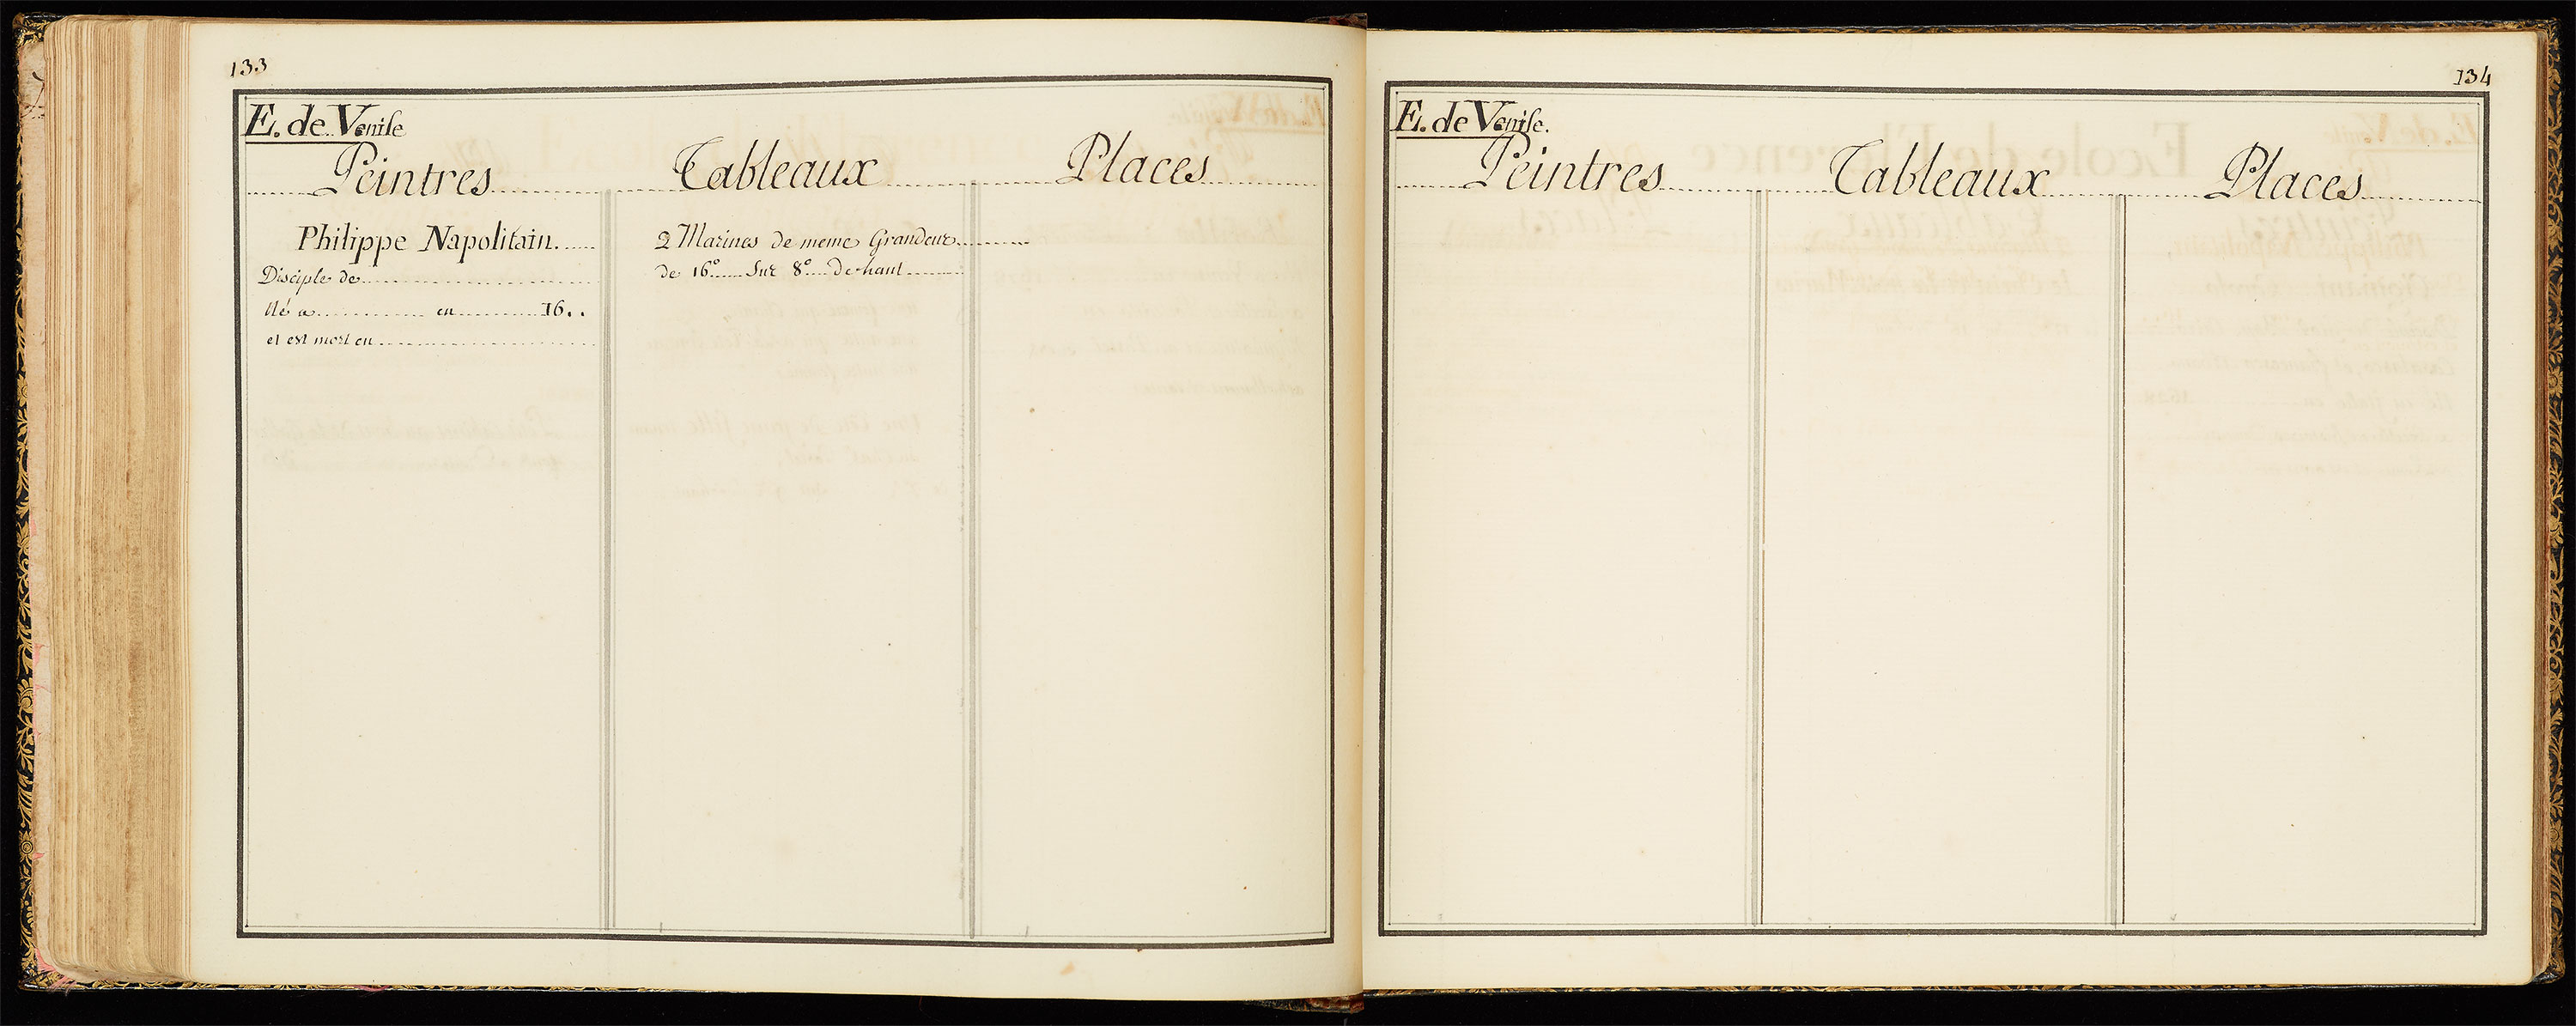 133
E. de Venise
Peintres Tableaux Places
Philippe Napolitain. 2 Marines de meme Grandeur
Disciple de de 16° Sur 8° de haut
Né a en 16..
et est mort en
134
E. de Venise.
Peintres Tableaux Places